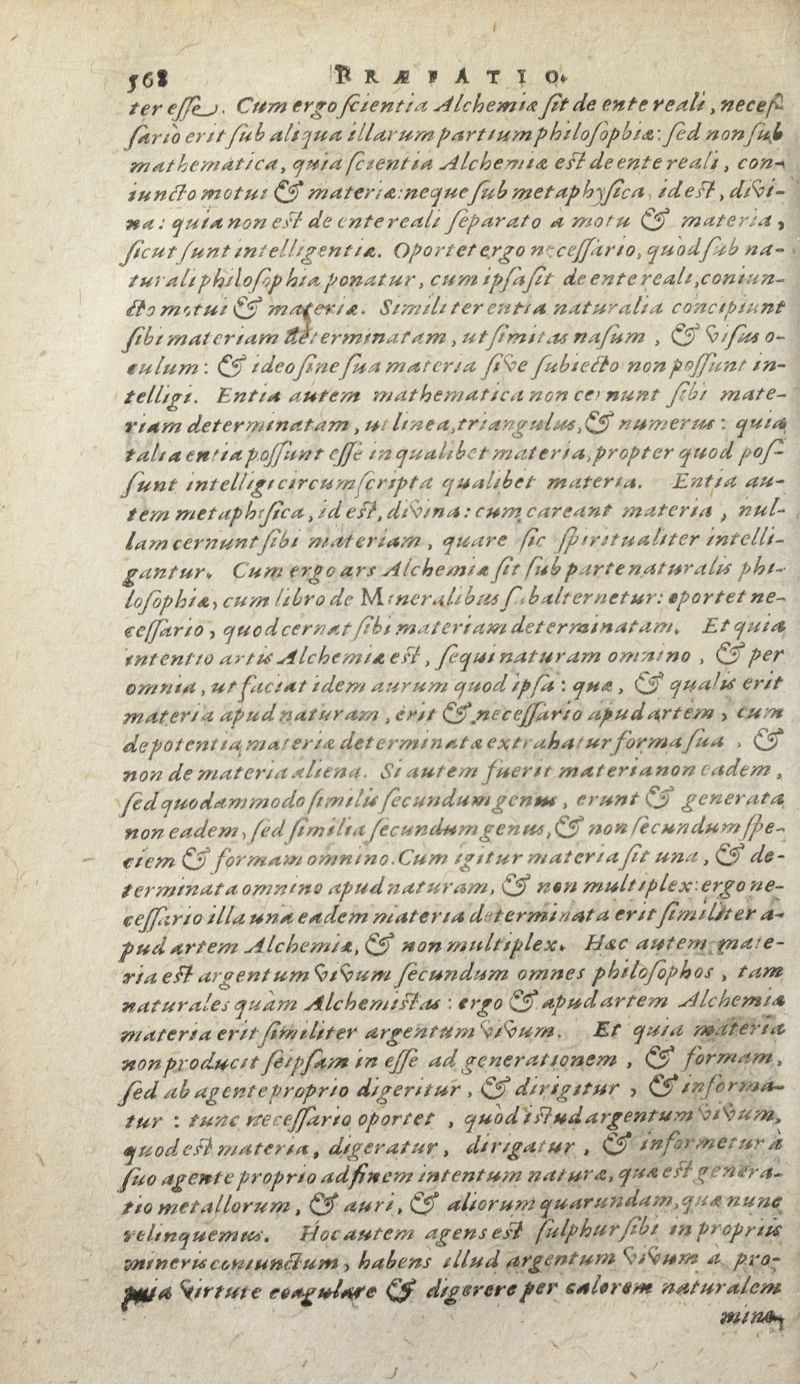 568 PRÆFATIO.
ter esse. Cum ergo scientia Alchemiæ sit de ente reali, neces-
sario erit sub aliqua illarum partium philosophiæ: sed non sub
mathematica, quia scientia Alchemiæ est de ente reali, con-
iuncto motui & materiæ: neque sub metaphysica, idest, divi-
na: quia non est de ente reali separato a motu & materia,
sicut sunt intelligentiæ. Oportet ergo necessario, quòd sub na-
turali philosophia ponatur, cum ipsa sit de ente reali, coniun-
cto motui & materiæ. Similiter entia naturalia concipiunt
sibi materiam determinatam, ut simitas nasum, & visus o-
culum: & ideo sine sua materia sive subiecto non possunt in-
telligi. Entia autem mathematica non cernunt sibi mate-
riam determinatam, ut linea, triangulus, & numerus: quia
talia entia possunt esse in qualibet materia, propter quod pos-
sunt intelligi circumscripta qualibet materia. Entia au-
tem metaphisica, id est, divina: cum careant materia, nul-
lam cernunt sibi materiam, quare sic spiritualiter intelli-
gantur. Cum ergo ars Alchemiæ sit sub parte naturalis phi-
losophiæ, cum libro de Mineralibus subalternetur: oportet ne-
cessario, quod cernat sibi materiam determinatam. Et quia
intentio artis Alchemiæ est, sequi naturam omnino, & per
omnia, ut faciat idem aurum quod ipsa: quæ, & qualis erit
materia apud naturam, erit & necessario apud artem, cum
de potentia materiæ determinatæ extrahatur forma sua, &
non de materia aliena. Si autem fuerit materia non eadem,
sed quodammodo similis secundum genus, erunt & generata
non eadem, sed similia secundum genus, & non secundum spe-
ciem & formam omnino. Cum igitur materia sit una, & de-
terminata omnino apud naturam, & non multiplex: ergo ne-
cessario illa una eadem materia determinata erit similiter a-
pud artem Alchemiæ, & non multiplex. Hæc autem mate-
ria est argentum vivum secundum omnes philosophos, tam
naturales quàm Alchemistas: ergo & apud artem Alchemiæ
materia erit similiter argentum vivum. Et quia materia
non producit seipsam in esse ad generationem, & formam,
sed ab agente proprio digeritur, & dirigitur, & informa-
tur: tunc necessario oportet, quòd istud argentum vivum,
quod est materia, digeratur, dirigatur, & informetur à
suo agente proprio ad finem intentum naturæ, quæ est genera-
tio metallorum, & auri, & aliorum quarundam, quæ nunc
relinquemus. Hoc autem agens est sulphur sibi in propriis
mineris coniunctum, habens illud argentum vivum a pro-
pria virtute coagulare & digerere per calorem naturalem
mine-